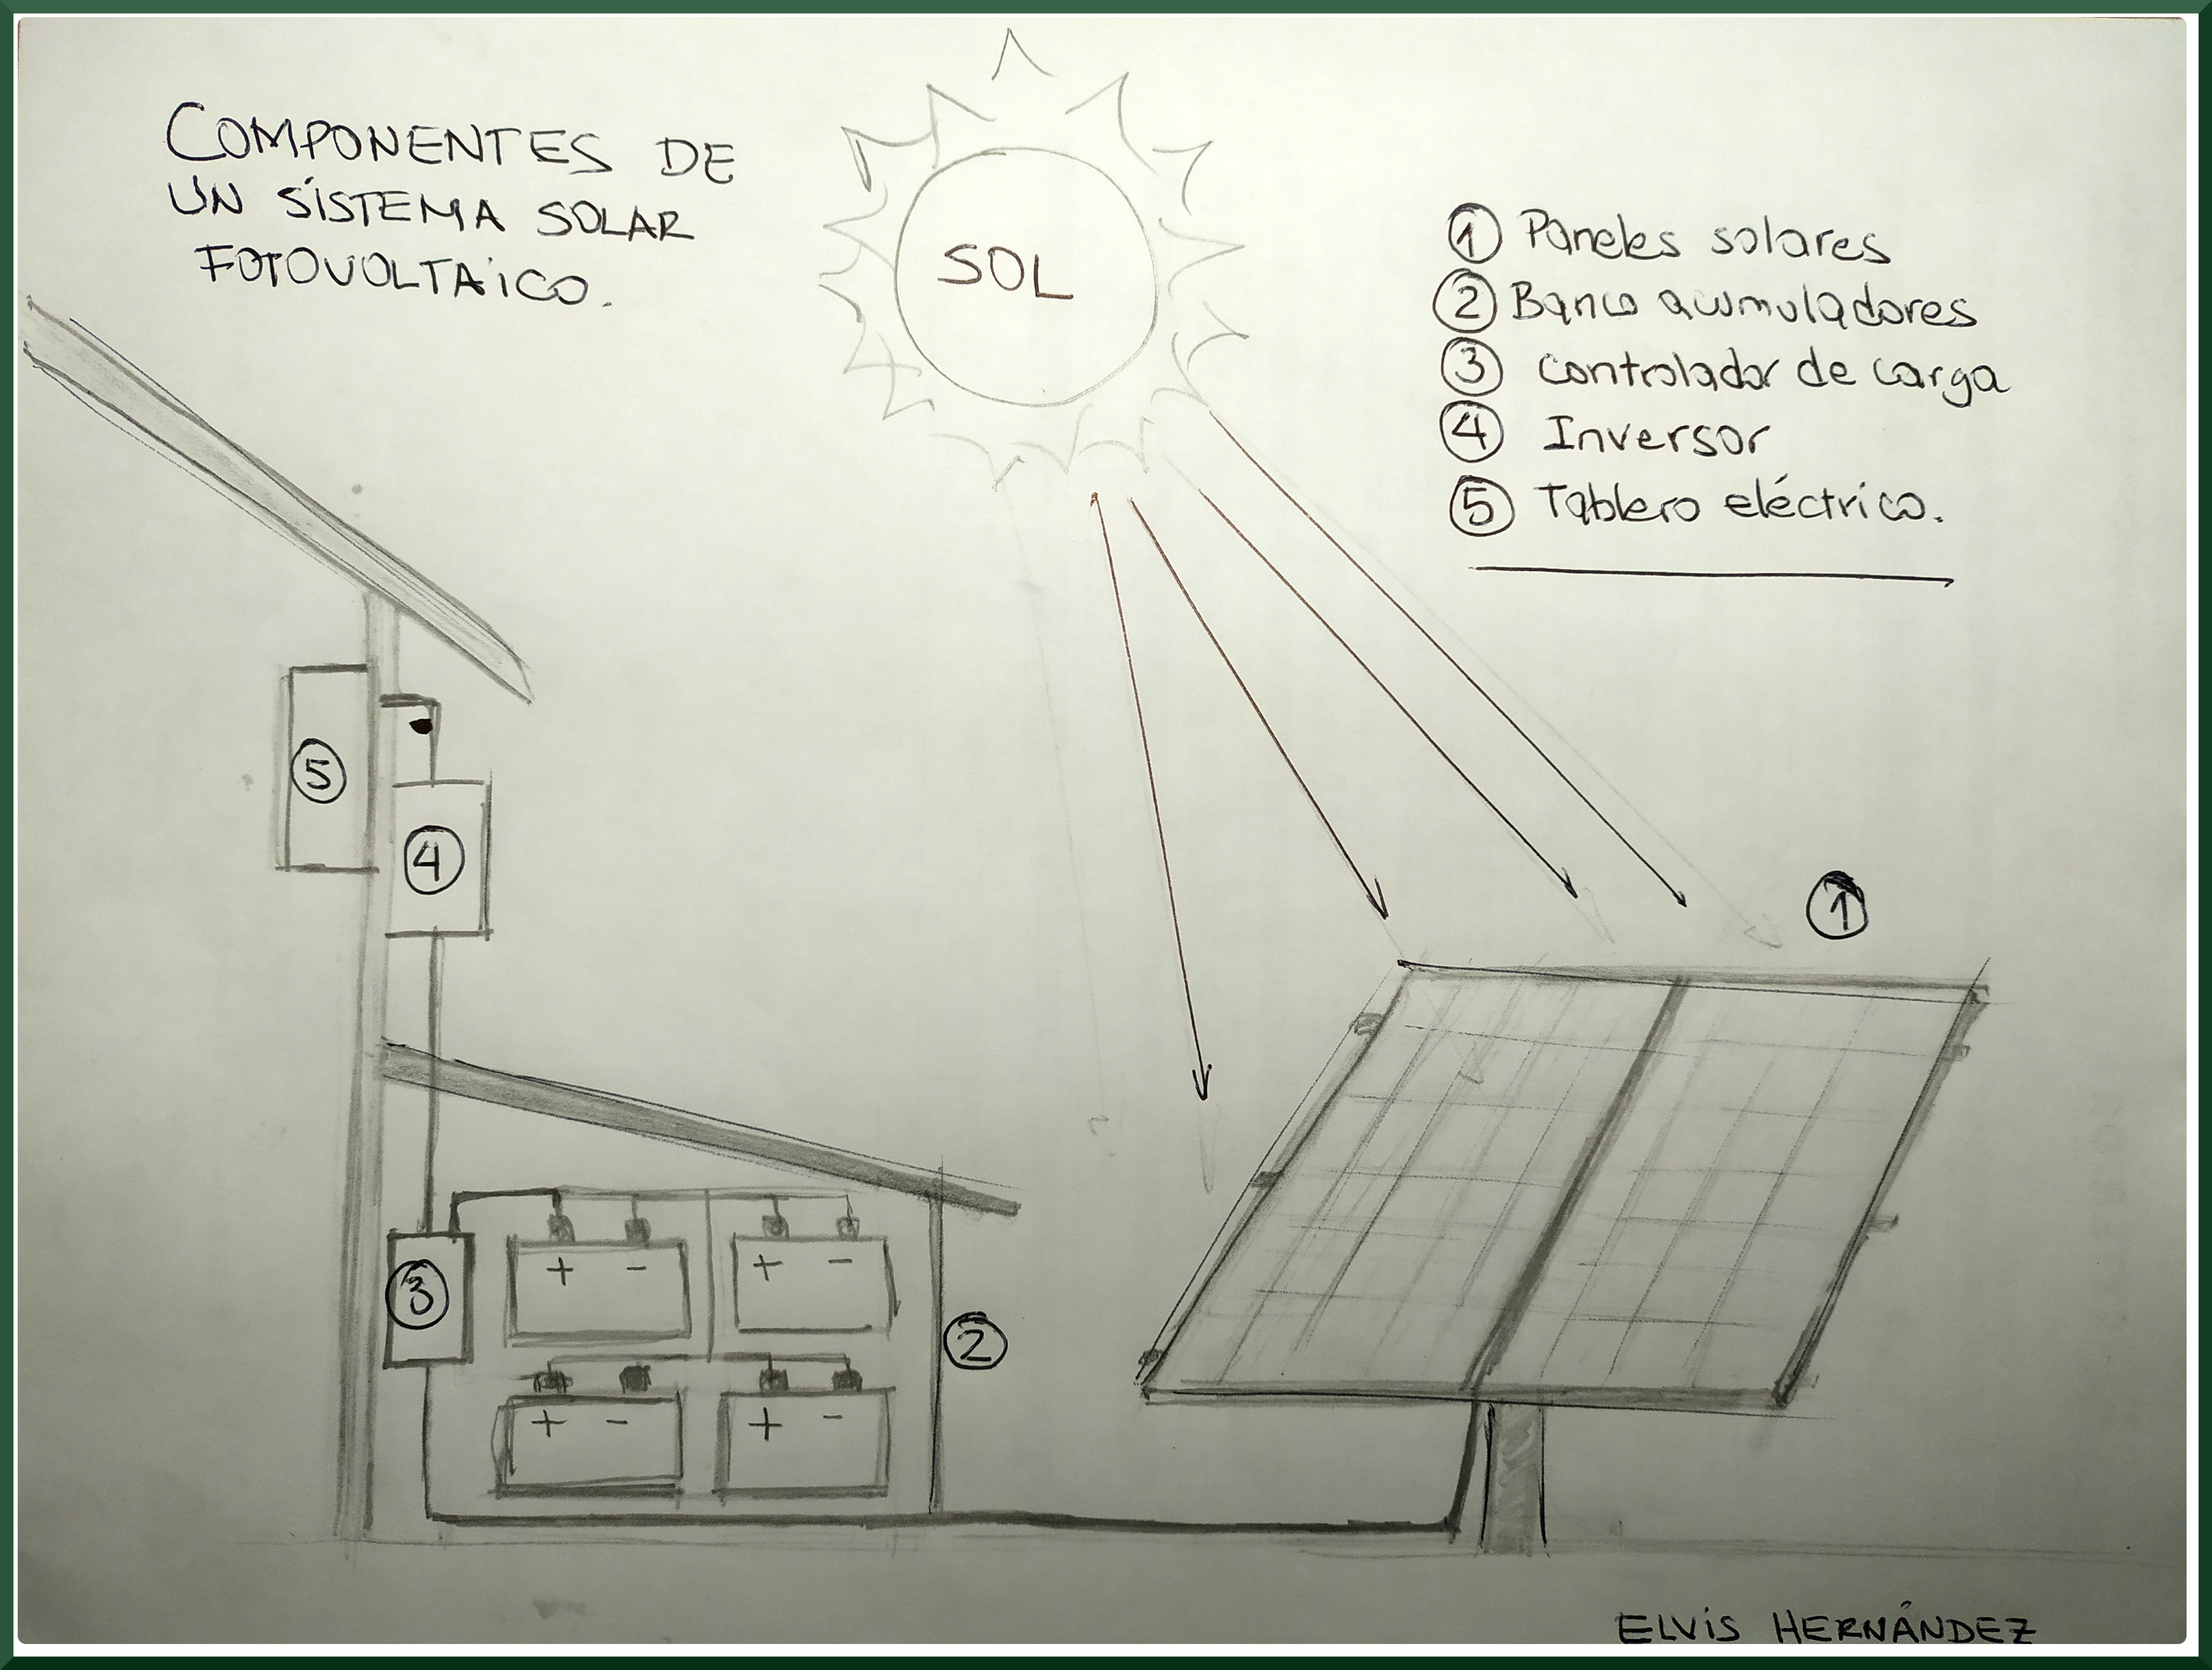 COMPONENTES DE
UN SISTEMA SOLAR
FOTOVOLTAICO.
SOL
1 Paneles solares
2 Banco acumuladores
3 Controlador de carga
4 Inversor
5 Tablero eléctrico.
5
4
1
3
+ - + -
2
+ - + -
ELVIS HERNÁNDEZ